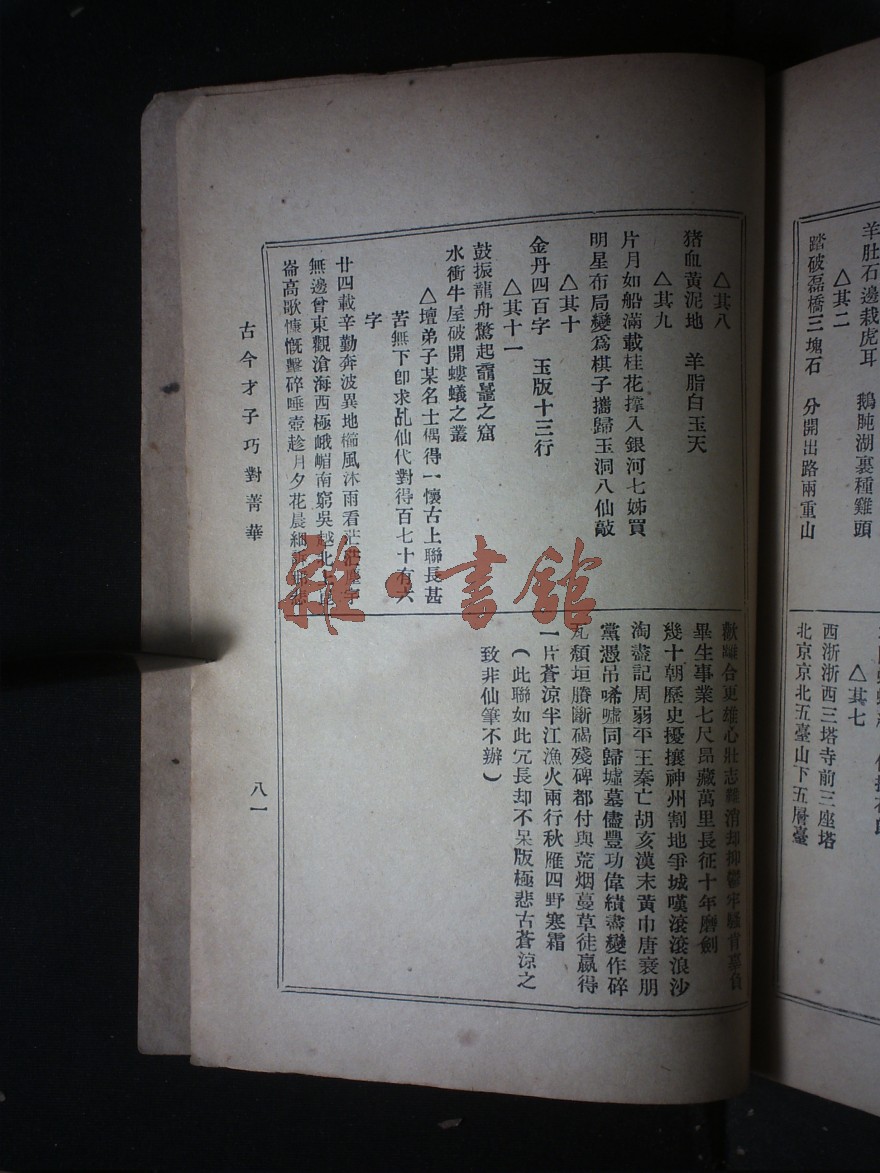 羊肚石邊栽虎耳　鵝肫湖裏種雞頭
△其二
踏破磊橋三塊石　分開出路兩重山
△其七
西浙浙西三塔寺前三座塔
北京京北五臺山下五層臺
△其八
猪血黃泥地　羊脂白玉天
△其九
片月如船滿載桂花撑入銀河七姊買
明星布局變爲棋子攜歸玉洞八仙敲
△其十
金丹四百字　玉版十三行
△其十一
鼓振龍舟驚起黿鼉之窟
水衝牛屋破開螻蟻之叢
△壇弟子某名士偶得一懷古上聯長甚
苦無下卽求乩仙代對得百七十有六
字
廿四載辛勤奔波異地櫛風沐雨看茫茫
無邊曾東觀滄海西極峨嵋南窮吳越北
崙高歌慷慨擊碎唾壺趁月夕花晨細
歡離合更雄心壯志難消却抑鬱牢騷
畢生事業七尺昂藏萬里長征十年磨劍
幾十朝歷史擾攘神州割地爭城嘆滾滾浪沙
淘盡記周弱平王秦亡胡亥漢末黃巾唐衰朋
黨憑吊唏噓同歸墟墓儘豐功偉績盡變作碎
瓦頹垣賸斷碣殘碑都付與荒烟蔓草徒贏得
一片蒼涼半江漁火兩行秋雁四野寒霜
（此聯如此冗長却不呆版極悲古蒼涼之
致非仙筆不辦）
古今才子巧對菁華
八一
雜·書館